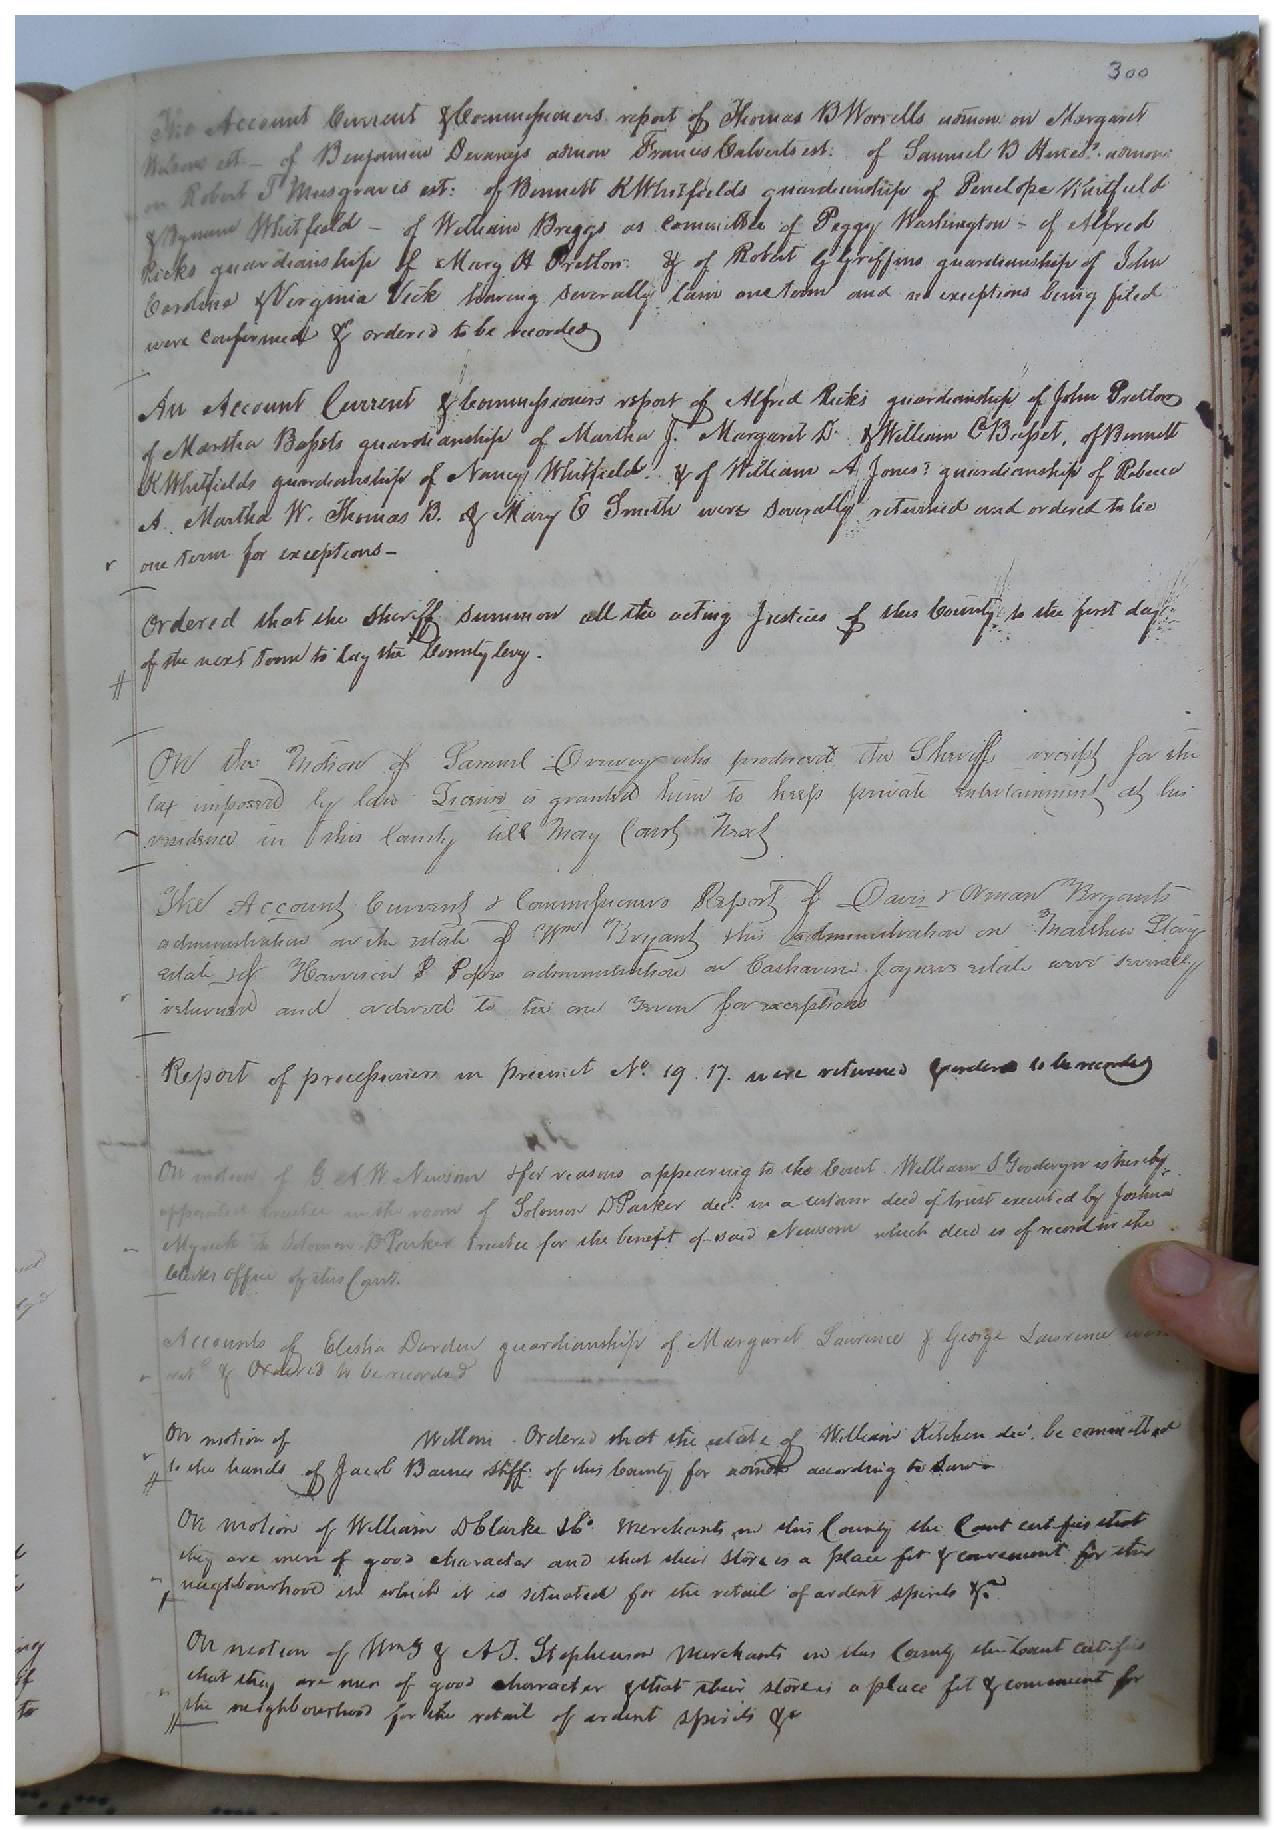 300
The Account Current & Commissioners report of Thomas B Worrells admon on Margaret
Wilsons est – of Benjamin Devanys admon Frances Calverts est: of Samuel B Hines admon
on Robert T Musgraves est: of Bennett K Whitfields guardianship of Penelope Whitfield
& Bynum Whitfield – of William Briggs as committee of Peggy Washington – of Alfred
Ricks guardianship of Mary A Pretlow & of Robert G Griffins guardianship of John
Caroline & Virginia Vick having severally lain one term and no exceptions being filed
were confirmed & ordered to be recorded
An Account Current & Commissioners report of Alfred Ricks guardianship of John Pretlow
of Martha Bassets guardianship of Martha J. Margaret D. & William C Bisset, of Bennett
K Whitfields guardianship of Nancy Whitfield. & of William A Jones guardianship of Rebecca
A. Martha W. Thomas B. & Mary E Smith were severally returned and ordered to lie
one term for exceptions –
Ordered that the Sheriff summon all the acting Justices of this County to the first day
of the next term to lay the County levy.
On the Motion of Samuel Drewry who produced the Sheriff receipt for the
tax imposed by law License is granted him to keep private entertainment at his
residence in this County till May Court Next
The Account Current & Commissioners Report of Davis & Orman Bryants
administration on the estate of Wm Bryant this administration on Matthew
estate of Harrison P Popes administration on Catharine Joyners estate were severally
returned and ordered to lie one Term for exceptions
Report of processioners in precinct No. 19. 17. were returned & orderd to be recorded
On motion of G A W Newsom & for reasons appearing to the Court William S Goodwyn is hereby
appointed trustee in the room of Solomon D Parker decd. in a certain deed of trust executed by Joshua
Myrick to Solomon D Parker trustee for the benefit of said Newsom which deed is of record in the
Clerks office of this Court.
Accounts of Elisha Darden guardianship of Margaret Lawrence & George Lawrence were
retd & Ordered to be recorded
On motion of Ordered that the estate of William Kitchen decd. be committed
to the hands of Jacob Barnes Shff. of this County for admon according to Law
On motion of William D Clarke & Co Merchants in this County the Court certifies that
they are men of good character and that their store is a place fit & convenient for the
neighbourhood in which it is situated for the retail of ardent spirits &c
On motion of Wm S & A J. Stephenson Merchants in this County the Court certifies
that they are men of good character & that their store is a place fit & convenient for
the neighbourhood for the retail of ardent spirits &c